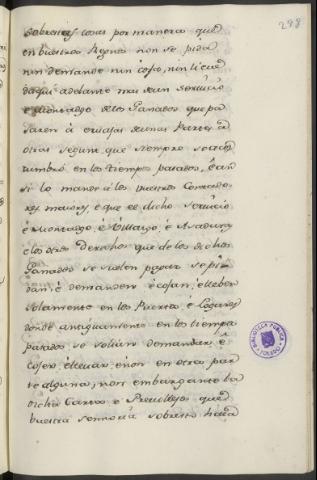 298
sobre estas cosas por manera que
en vuestros Regnos non se pida
nin demande nin coja, nin lieve
daqui adelante mas de un servicio
e montadgo de los Ganados que pa
saren á ervajar de unas Partes á
otras segunt que siempre se acos
tumbró en los tiempos pasados, é an
si lo mande á los vuestros Contado
res maiores é que el dicho servicio
é Montadgo, é Villazgo, é Asadura
é los otros Derechos que de los dichos
Ganados se suelen pagar se pi
dan é demanden é cojan, é lleben
solamente en los Puertos é Logares
donde antiguamente en los tiempos
pasados se solian demandar é
cojer, é llevar, é non en otra par
te alguna, non embargante los
dichas Cartas é Previllejos que
vuestra Señoria sobresto haia
BIBLIOTECA PUBLICA
TOLEDO